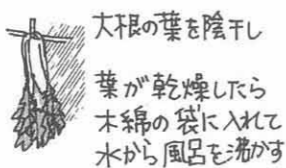 大根の葉を陰干し
葉が乾燥したら
木綿の袋に入れて
水から風呂を沸かす